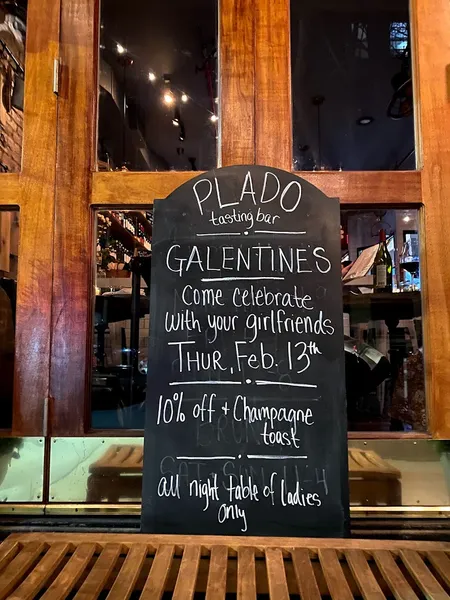 PLADO
tasting bar
GALENTINE'S
Come celebrate
with your girlfriends
THUR, Feb. 13th
10% off + Champagne
toast
all night table of ladies
only